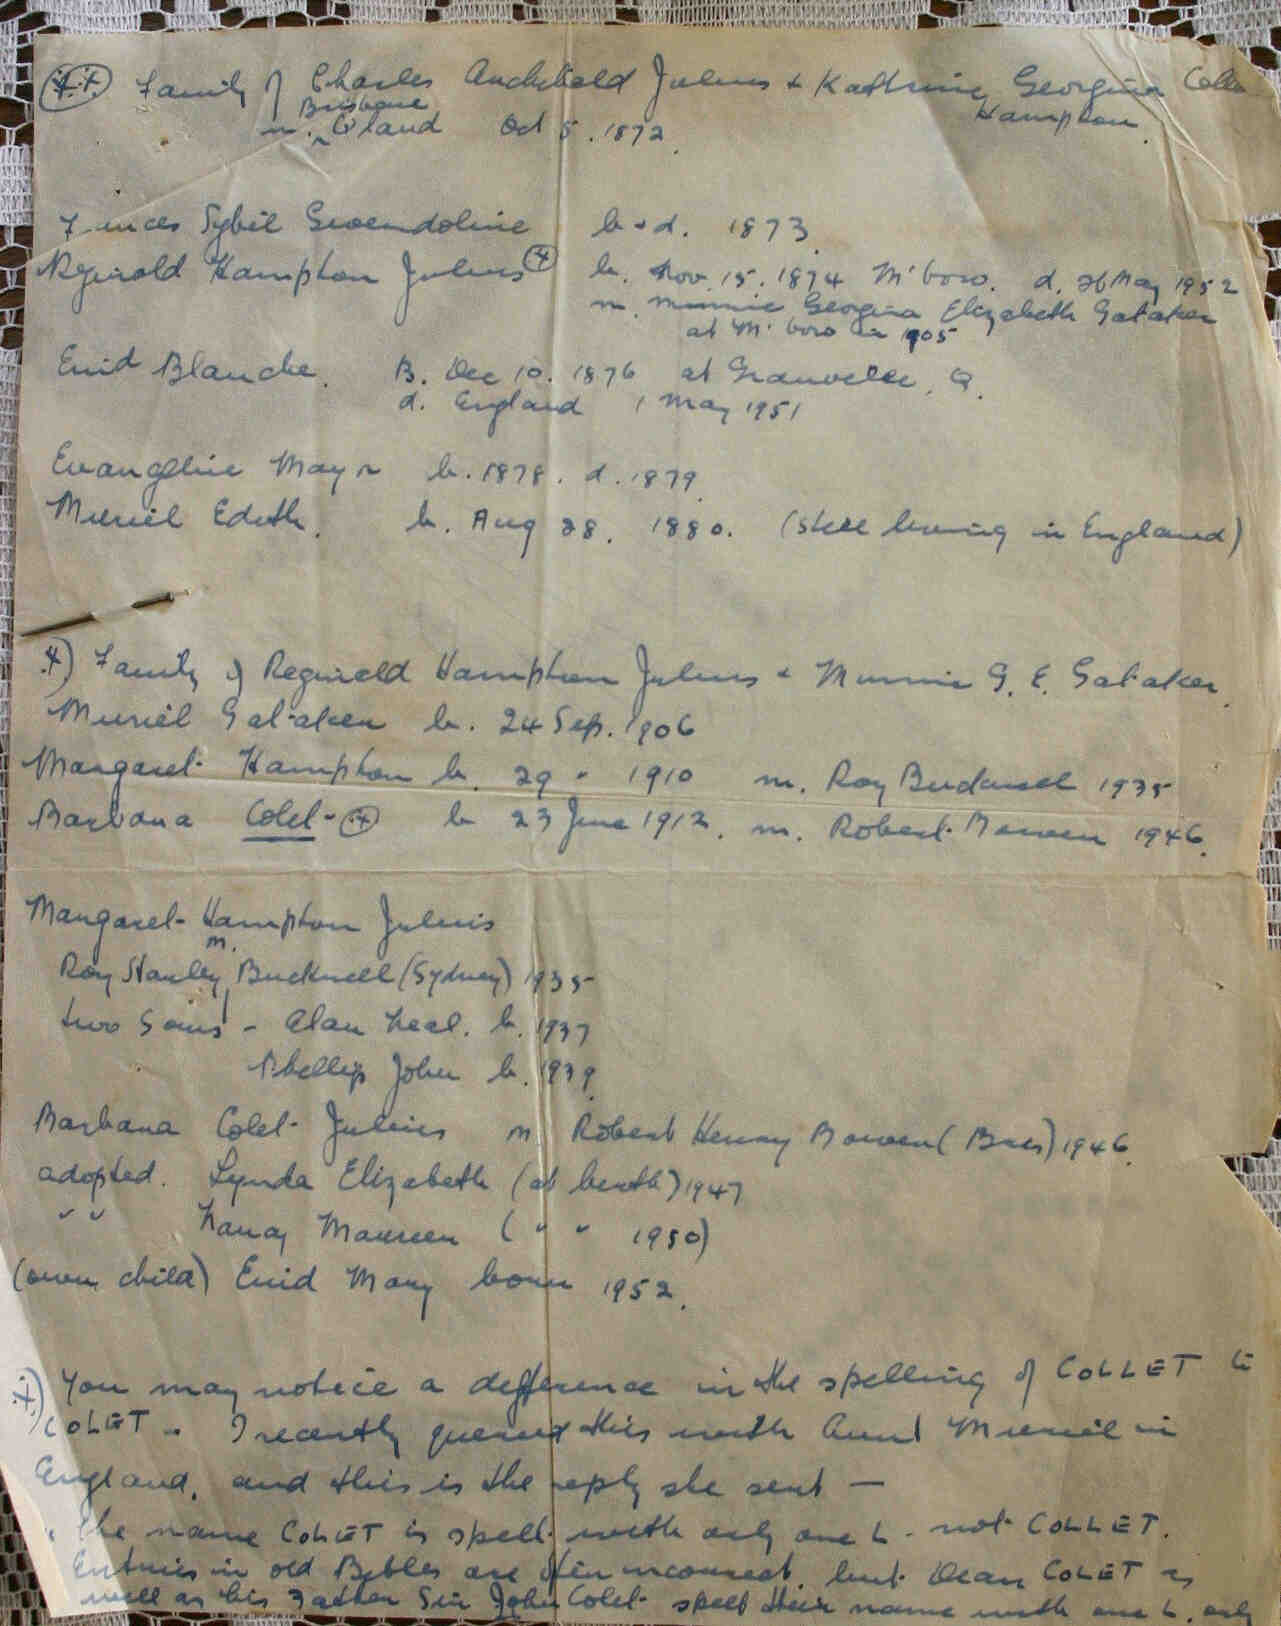 Family of Charles Archibald Julius + Katherine Georgina
Brisbane Hampton
m. Q'land Oct 5. 1872.
Frances Sybil Gwendoline b & d. 1873.
Reginald Hampton Julius b. Nov. 15. 1874 M'boro. d. 26 May 1952
m. Minnie Georgina Elizabeth Gataker
at M'boro in 1905
Enid Blanche. B. Dec 10. 1876 at Granville, Q.
d. England 1 May 1951
Evangeline May b. 1878. d. 1879.
Muriel Edith. b. Aug 28. 1880. (still living in England)
Family of Reginald Hampton Julius + Minnie G. E. Gataker.
Muriel Gataker b. 24 Sep. 1906
Margaret Hampton b. 29 " 1910 m. Roy Bucknell 1935
Barbara Colet b 23 June 1912. m. Robert Bowen 1946.
Margaret Hampton Julius
m.
Roy Stanley Bucknell (Sydney) 1935
two sons - Alan Neal. b. 1937
Phillip John b. 1939.
Barbara Colet Julius m Robert Henry Bowen (Bris) 1946.
adopted. Lynda Elizabeth (at birth) 1947
" " Nancy Maureen ( " " 1950)
(own child) Enid Mary born 1952.
You may notice a difference in the spelling of COLLET to
COLET. I recently queried this with Aunt Muriel in
England, and this is the reply she sent —
"The name COLET is spelt with only one L - not COLLET.
Entries in old Bibles are often incorrect, but Dean COLET as
well as his Father Sir John Colet spelt their name with one L. only